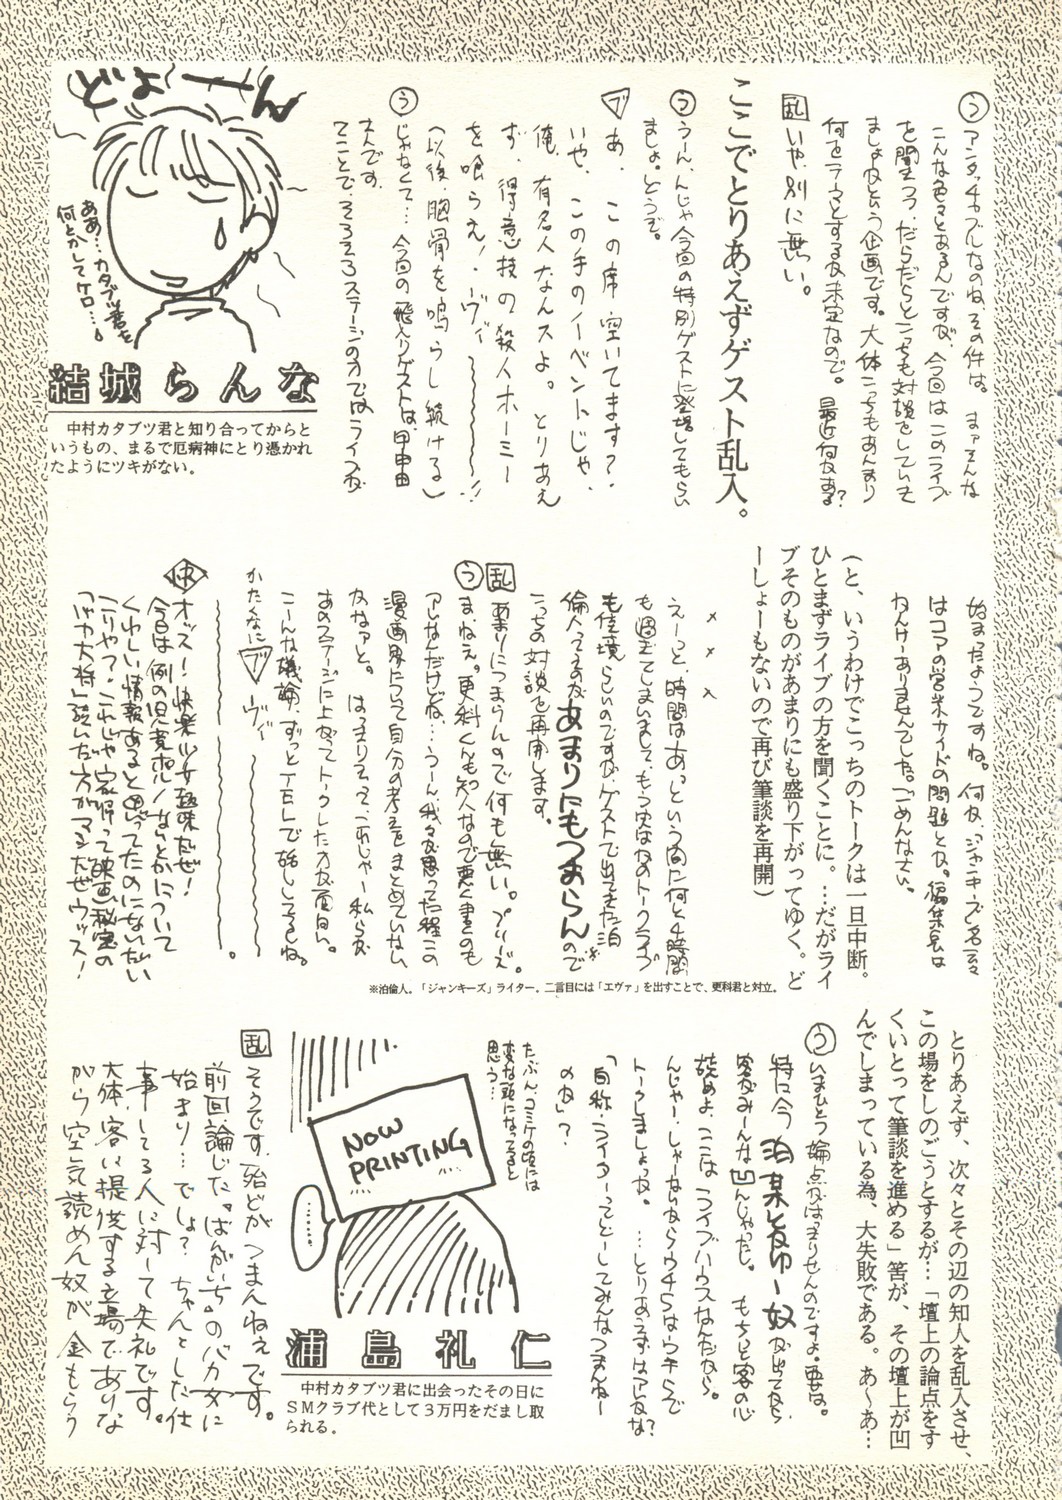 う アンタッチャブルなのね、その件は。まァそんな
こんな色々とあるんですが、今回はこのライブ
を聞きつつ、だらだらとこっちも対談をしていき
ましょうかという企画です。大体こっちもあんまり
何をテーマとするか未定なので。最近何かある?
乱 いや、別に無い。
ここでとりあえずゲスト乱入。
う うーん、んじゃ今回の特別ゲストに登場してもらい
ましょ。どうぞ。
ブ あ、この席空いてます?
いや、この手のイベントじゃ、
俺、有名人なんスよ。とりあえ
ず、得意技の殺人ホーミー
を喰らえ!・ヴィ〜〜〜!!
(以後、胸骨を鳴らし続ける)
う じゃなくて…今回の飛入りゲストは、
大人です。
てことで、そろそろステージの方ではライブが
どよーん
ああ…カタブツ君を
何とかしてケロ…。
結城らんな
中村カタブツ君と知り合ってからと
いうもの、まるで厄病神にとり憑かれ
たようにツキがない。
始まったようですね。何か、「ジャンキーズ」名云々
はコアの営業サイドの問題とか。編集長は
わんけーありませんでした。ごめんなさい。
(と、いうわけでこっちのトークは一旦中断。
ひとまずライブの方を聞くことに。…だがライ
ブそのものがあまりにも盛り下がってゆく。ど
ーしょーもないので再び筆談を再開)
× × ×
えーっと、時間はあっという間に何と4時間
も過ぎてしまいまして、もう次はかのトークライブ
も佳境らしいのですが、ゲストで出てきた泊
倫人ってえのがあまりにもつまらんので※
こっちの対談を再開します。
乱 あまりにつまらんので何も無い。プリーズ。
う まねえ。更科くんも知人なので悪く書くのも
アレなんだけどね、…うーん我々が思った程この
漫画界について自分の考えをまとめていない
かなァと。はっきり言って、これじゃー私らが
あのステージに上がってトークした方が面白い。
こーんな議論、ずっとTELで話ししてるしね。
かたくなにブ ヴィ〜〜〜〜。
快 オッス!快楽少女趣味だぜ!
今日は例の児童ポルノなんとかについて
くわしい情報あると思ってたのにないだい
こりゃ?これじゃ家帰って映画秘宝の
「バカ大将」読んだ方がマシだぜウッス!
※泊倫人。「ジャンキーズ」ライター。二言目には「エヴァ」を出すことで、更科君と対立。
とりあえず、次々とその辺の知人を乱入させ、
この場をしのごうとするが…「壇上の論点をす
くいとって筆談を進める」筈が、その壇上が凹
んでしまっている為、大失敗である。あ〜あ…
う いまひとつ論点がはっきりせんのですよ・要は。
特に今泊某とかゆー奴が出てから
客がみーんな凹んじゃったし。もちっと客の心
読めよ、ここはライブハウスなんだから。
んじゃー、しゃーないからウチらはウチらで
トークしましょっか。…とりあえずはアレかな?
「自称・ライターってどーしてみんなつまんねー
のか」?
たぶん、コミケの頃には
変な頭になってると
思う…
NOW
PRINTING
……
浦島礼仁
中村カタブツ君に出会ったその日に
SMクラブ代として3万円をだまし取
られる。
乱 そうです、殆どがつまんねえです。
前回論じた。"ばんがいち"のバカ女に
始まり…でしょ?ちゃんとした仕
事してる人に対して失礼です。
大体、客い提供する立場でありな
がら空気読めん奴が金もらう